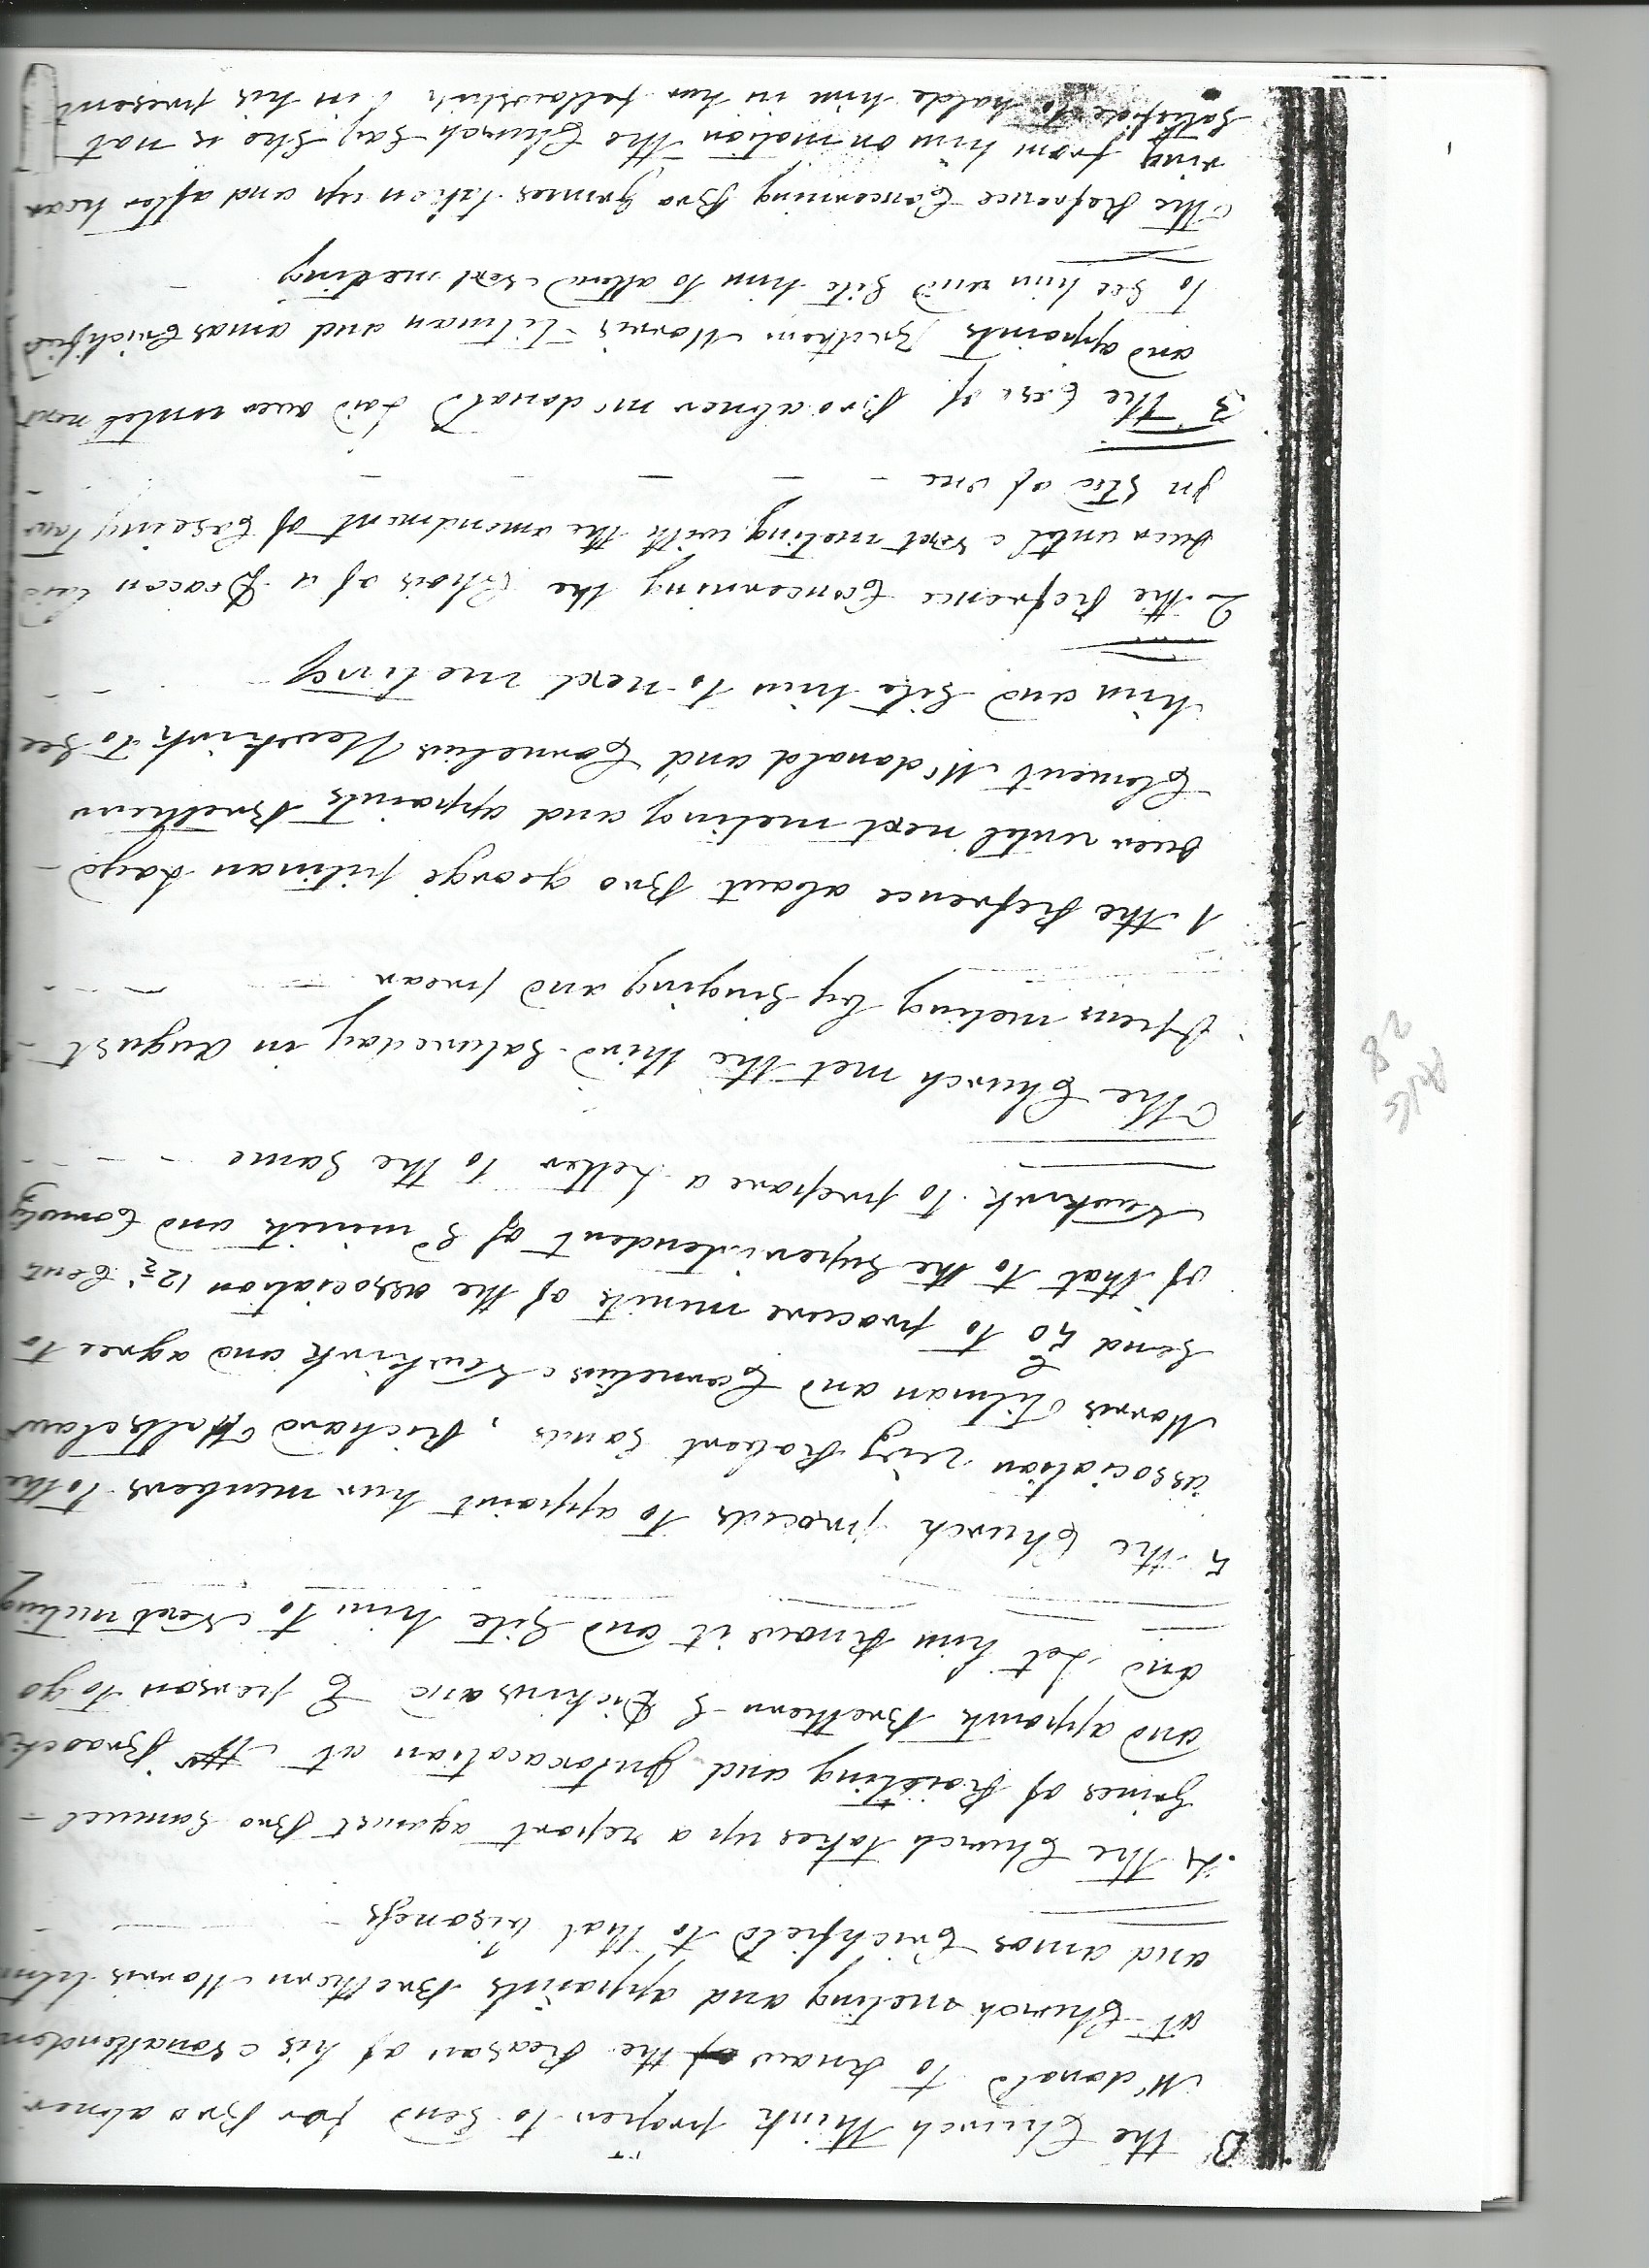 3 the Church think proper to Send for Bro abner
Mcdonald to know the Reason of his Nonattendon
at Church meting and appaints Brethern Morris titm
and amos Crichfield to that bisaness
4 the Church takes up a report against Bro Samuel
Grimes of fraisting and Intoxacation at Mr Braocks
and appoints Brethern S Dickins and C pierson to go
and Let him Know it and Site him to Next meting
5 the Church proceeds to appoint hur members to the
association viz Robert Sands, Richard Holtsclaw
Morris Titman and Cornelius Newkirk and agree to
Send 50 C to procure minits of the association 12½ Cent
of that to the Superintendent of Sd minits and Cornely
Newkirk to prepare a Letter to the Same
The Church met the third Saturday in August
Opens meting by Singing and prear
1 the Refrence about Bro george pitman Layd
over untel next meting and appaints Brethern
Clement Mcdonald and Cornelius Newkirk to See
him and Site him to next meeting
2 the Refrence Concerning the Chois of a Deacon laid
over until Next meting with the amendment of Caseing tow
In Sted of one
3 The Case of Bro abner mcdonald Laid over untel next
and appaints Brethern Morris Titman and amos Crichfield
to See him and Site him to attend Next meeting
The Refrence Concerning Bro Grimes taken up and after hear
ring from him on motion the Church Say She is not
Satisfide to halde him in hur fellowship in his present
Rolls
28